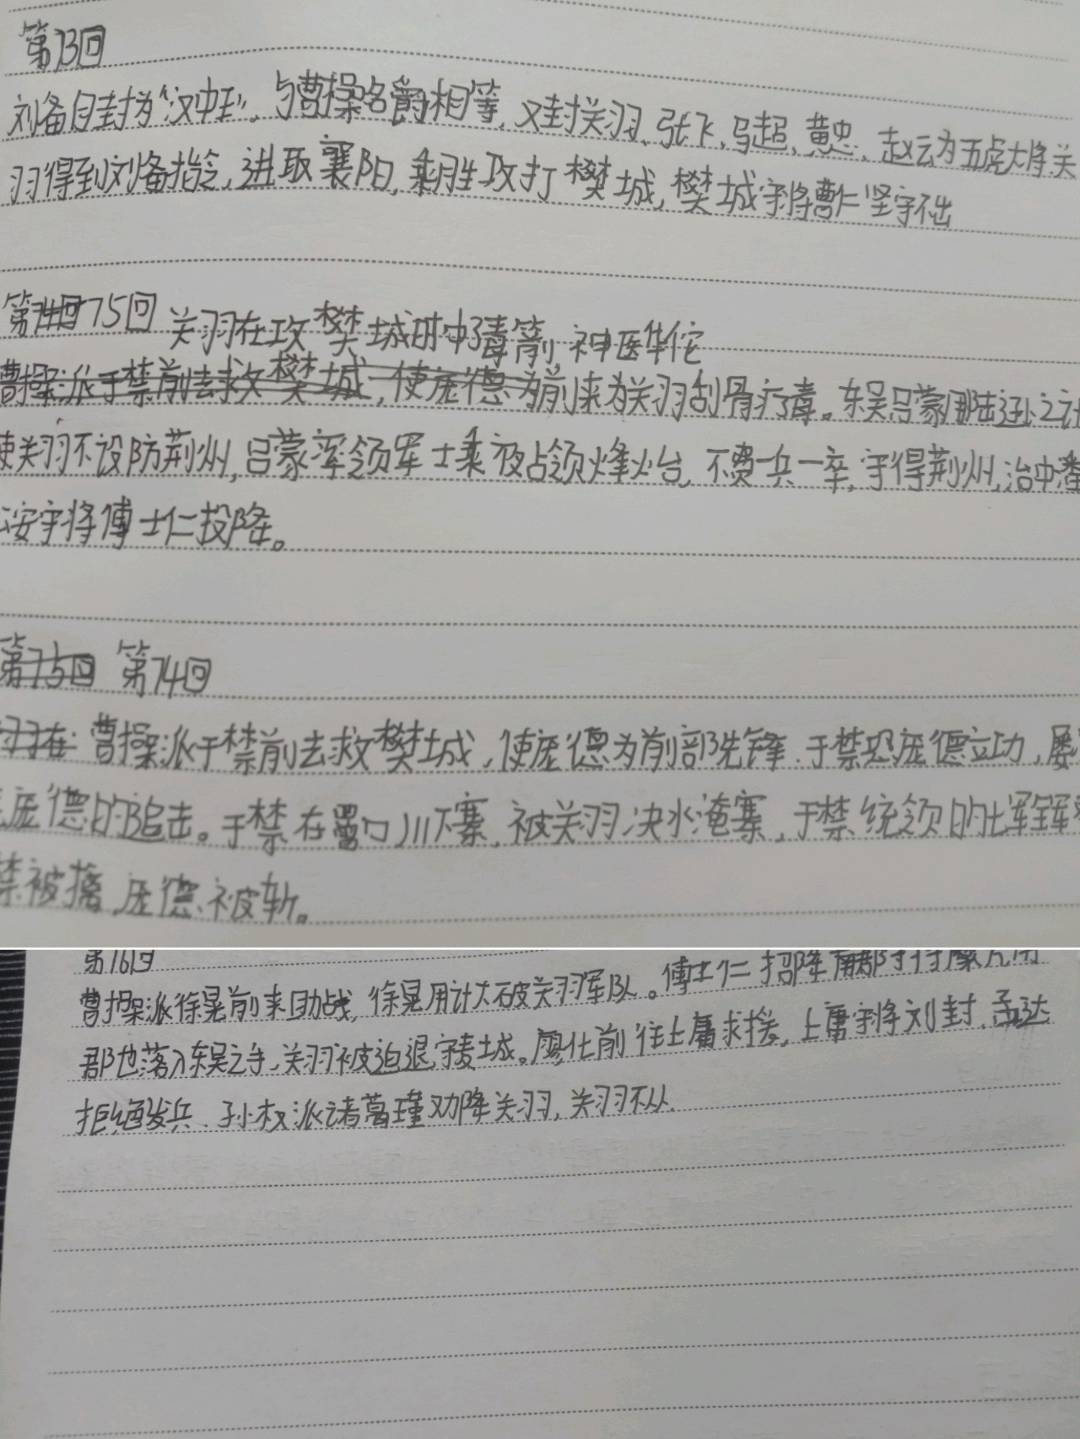 第73回
刘备自封为“汉中王”。与曹操名爵相等,又封关羽、张飞、马超、黄忠、赵云为五虎大将关
羽得到刘备指令,进取襄阳,乘胜攻打樊城,樊城守将曹仁坚守不出
第74回75回 关羽在攻樊城时中毒箭,神医华佗
曹操派于禁前去救樊城,使庞德为前来为关羽刮骨疗毒。东吴吕蒙用陆逊之计
使关羽不设防荆州,吕蒙率领军士乘夜占领烽火台,不费一兵一卒,守得荆州,治中潘
安守将傅士仁投降。
第75回 第74回
羽在 曹操派于禁前去救樊城,使庞德为前部先锋.于禁恐庞德立功,屡
庞德的追击。于禁在罾口川下寨,被关羽决水淹寨,于禁统领的七军
禁被擒,庞德被斩。
第76回
曹操派徐晃前来助战,徐晃用计大破关羽军队。傅士仁招降南郡守将糜芳南
郡也落入东吴之手,关羽被迫退守麦城。廖化前往上庸求援,上庸守将刘封、孟达
拒绝发兵.孙权派诸葛瑾劝降关羽,关羽不从.